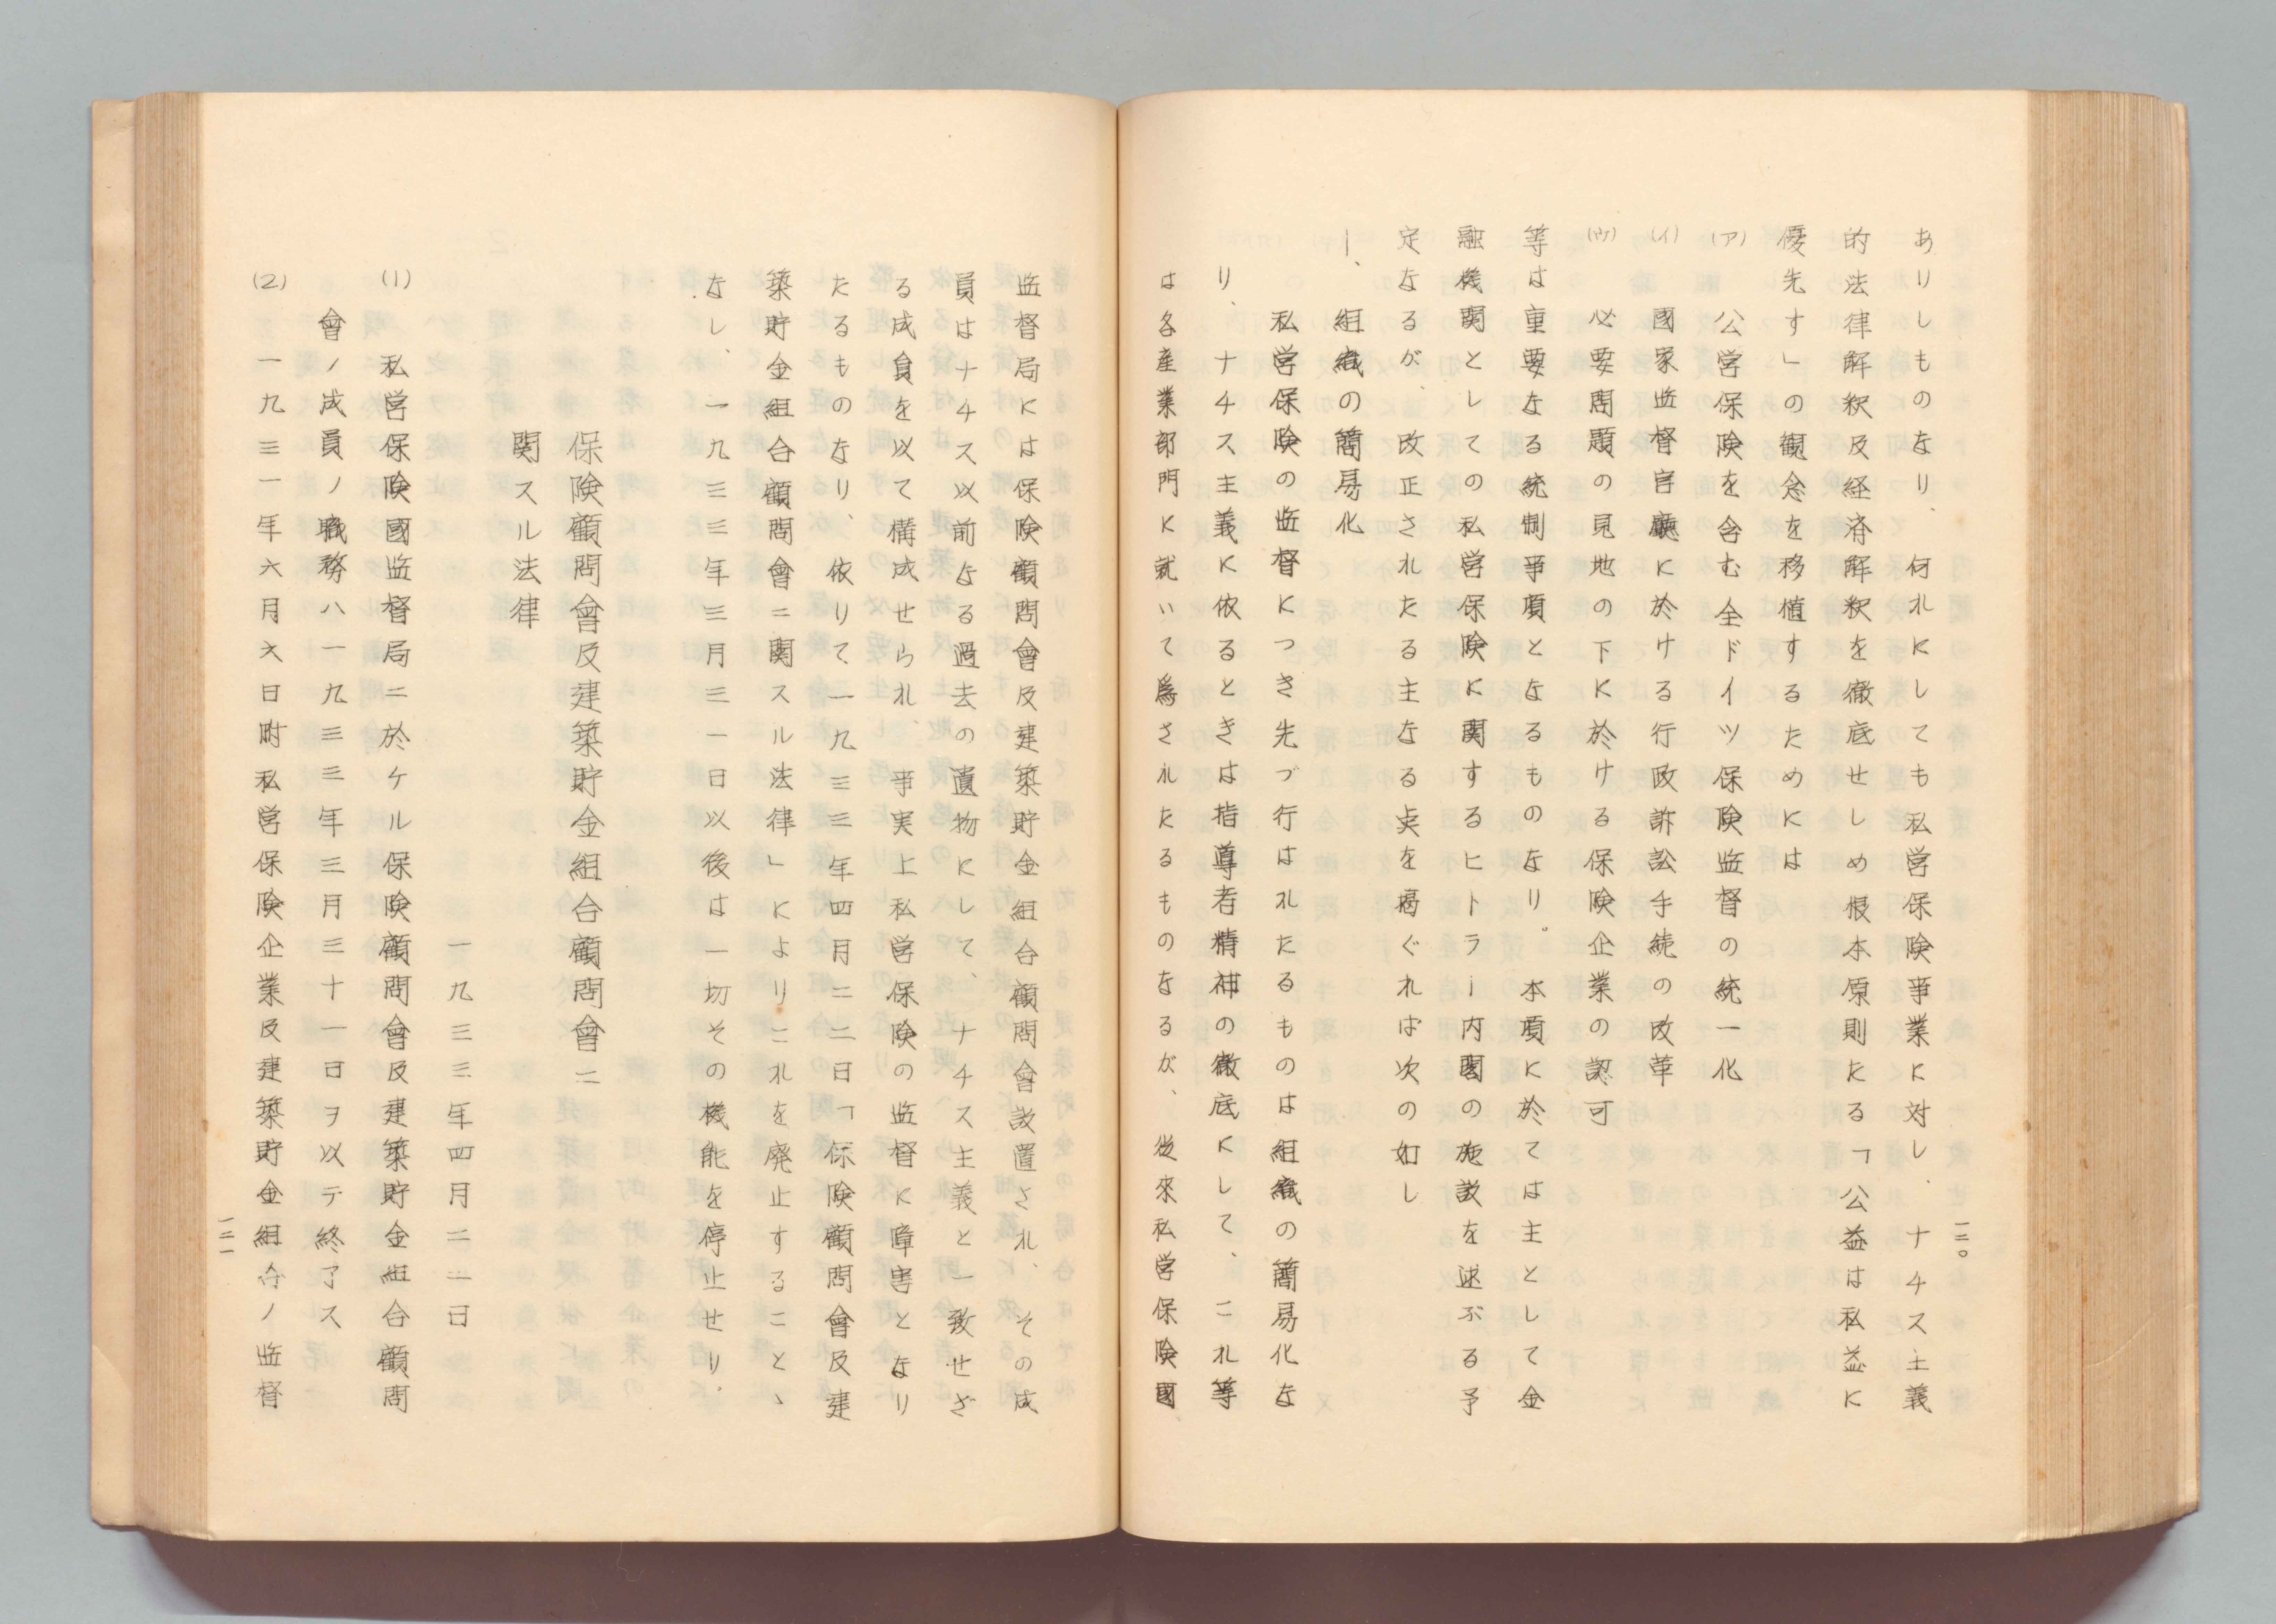 ありしものなり、何れにしても私営保険事業に対し、ナチス主義
的法律解釈及経済解釈を徹底せしめ根本原則たる「公益は私益に
優先す」の観念を移植するためには
(ア) 公営保険を含む全ドイツ保険監督の統一化
(イ) 國家監督官廳に於ける行政訴訟手続の改革
(ウ) 必要問題の見地の下に於ける保険企業の認可
等は重要なる統制事項となるものなり。本項に於ては主として金
融機関としての私営保険に関するヒトラー内閣の施設を述ぶる予
定なるが、改正されたる主なる点を掲ぐれば次の如し
一、組織の簡易化
私営保険の監督につき先づ行はれたるものは組織の簡易化な
り、ナチス主義に依るときは指導者精神の徹底にして、これ等
は各産業部門に就いて為されたるものなるが、従來私営保険國
一二〇
監督局には保険顧問會及建築貯金組合顧問會設置され、その成
員はナチス以前なる過去の遺物にして、ナチス主義と一致せざ
る成員を以て構成せられ、事実上私営保険の監督に障害となり
たるものなり、依りて一九三三年四月二二日「保険顧問會及建
築貯金組合顧問會ニ関スル法律」によりこれを廃止することゝ
なし、一九三三年三月三一日以後は一切その機能を停止せり。
保険顧問會及建築貯金組合顧問會ニ
関スル法律
一九三三年四月二二日
(1) 私営保険國監督局ニ於ケル保険顧問會及建築貯金組合顧問
會ノ成員ノ職務ハ一九三三年三月三十一日ヲ以テ終了ス
(2) 一九三一年六月六日附私営保険企業及建築貯金組合ノ監督
一二一